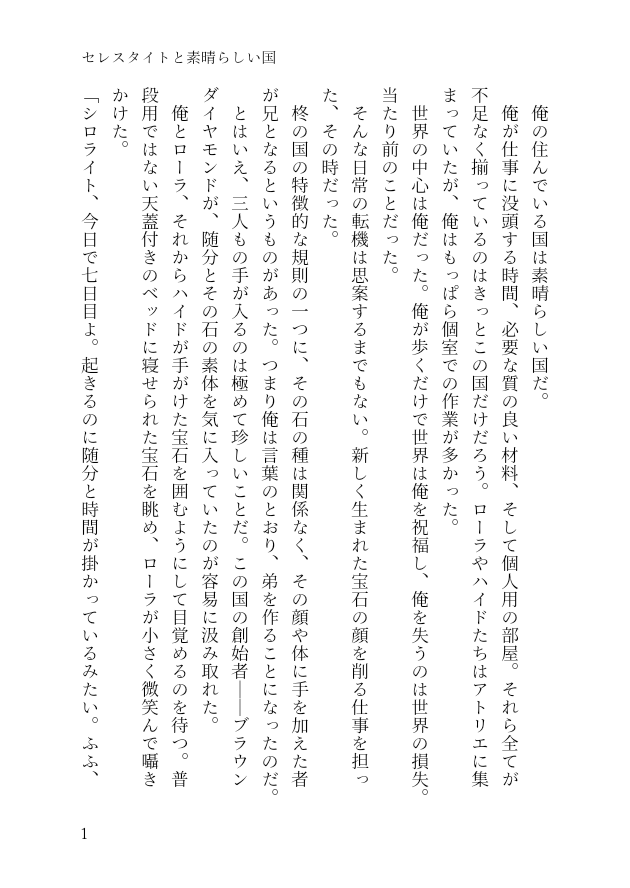 セレスタイトと素晴らしい国
　俺の住んでいる国は素晴らしい国だ。
　俺が仕事に没頭する時間、必要な質の良い材料、そして個人用の部屋。それら全てが
不足なく揃っているのはきっとこの国だけだろう。ローラやハイドたちはアトリエに集
まっていたが、俺はもっぱら個室での作業が多かった。
　世界の中心は俺だった。俺が歩くだけで世界は俺を祝福し、俺を失うのは世界の損失。
当たり前のことだった。
　そんな日常の転機は思案するまでもない。新しく生まれた宝石の顔を削る仕事を担っ
た、その時だった。
　柊の国の特徴的な規則の一つに、その石の種は関係なく、その顔や体に手を加えた者
が兄となるというものがあった。つまり俺は言葉のとおり、弟を作ることになったのだ。
　とはいえ、三人もの手が入るのは極めて珍しいことだ。この国の創始者――ブラウン
ダイヤモンドが、随分とその石の素体を気に入っていたのが容易に汲み取れた。
　俺とローラ、それからハイドが手がけた宝石を囲むようにして目覚めるのを待つ。普
段用ではない天蓋付きのベッドに寝せられた宝石を眺め、ローラが小さく微笑んで囁き
かけた。
「シロライト、今日で七日目よ。起きるのに随分と時間が掛かっているみたい。ふふ、
1